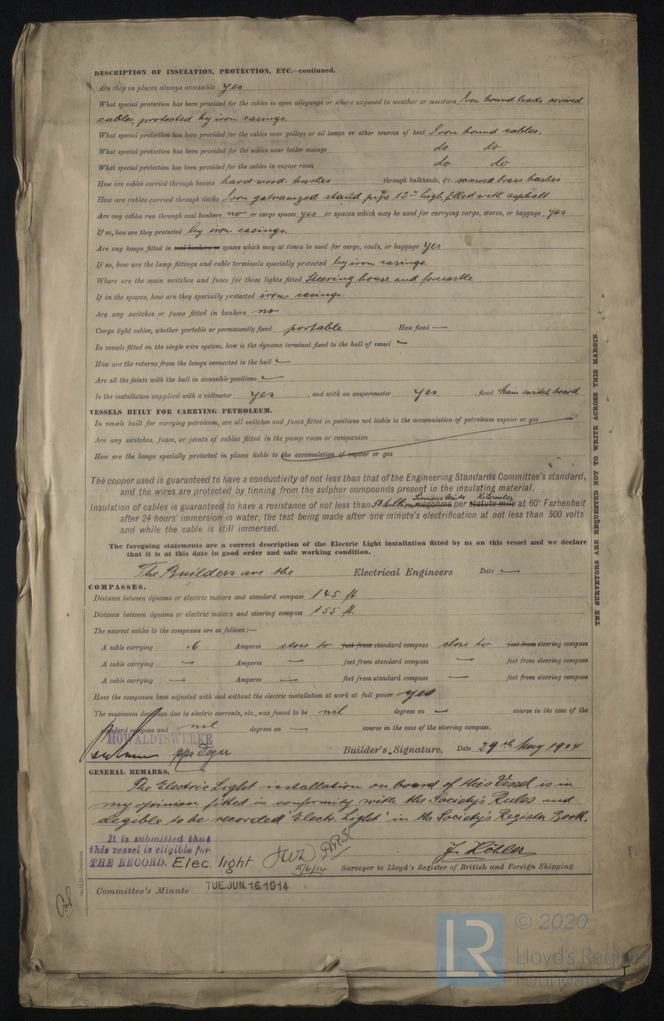 DESCRIPTION OF INSULATION, PROTECTION, ETC.—continued.
Are they in places always accessible yes
What special protection has been provided for the cables in open alleyways or where exposed to weather or moisture Iron bound leads covered
cables, protected by iron casings.
What special protection has been provided for the cables near galleys or oil lamps or other sources of heat Iron bound cables.
What special protection has been provided for the cables near boiler casings do do
What special protection has been provided for the cables in engine room do do
How are cables carried through beams hard wood bushes through bulkheads, &c. screwed brass bushes
How are cables carried through decks Iron galvanized stand pipe 12" high, filled with asphalt
Are any cables run through coal bunkers no or cargo spaces yes or spaces which may be used for carrying cargo, stores, or baggage yes
If so, how are they protected by iron casings.
Are any lamps fitted in coal bunkers or spaces which may at times be used for cargo, coals, or baggage yes
If so, how are the lamp fittings and cable terminals specially protected by iron casings.
Where are the main switches and fuses for these lights fitted Steering house and forecastle.
If in the spaces, how are they specially protected iron casings.
Are any switches or fuses fitted in bunkers no
Cargo light cables, whether portable or permanently fixed portable How fixed —
In vessels fitted on the single wire system, how is the dynamo terminal fixed to the hull of vessel —
How are the returns from the lamps connected to the hull —
Are all the joints with the hull in accessible positions —
Is the installation supplied with a voltmeter yes, and with an amperemeter yes, fixed Main switch board
VESSELS BUILT FOR CARRYING PETROLEUM.
In vessels built for carrying petroleum, are all switches and fuses fitted in positions not liable to the accumulation of petroleum vapour or gas
Are any switches, fuses, or joints of cables fitted in the pump room or companion
How are the lamps specially protected in places liable to the accumulation of vapour or gas
The copper used is guaranteed to have a conductivity of not less than that of the Engineering Standards Committee's standard,
and the wires are protected by tinning from the sulphur compounds present in the insulating material.
Insulation of cables is guaranteed to have a resistance of not less than megohms per statute mile Kilometer at 60° Farhenheit
after 24 hours' immersion in water, the test being made after one minute's electrification at not less than 500 volts
and while the cable is still immersed.
The foregoing statements are a correct description of the Electric Light installation fitted by us on this vessel and we declare
that it is at this date in good order and safe working condition.
The Builders are the Electrical Engineers Date —
COMPASSES.
Distance between dynamo or electric motors and standard compass 145 ft.
Distance between dynamo or electric motors and steering compass 155 ft.
The nearest cables to the compasses are as follows:—
A cable carrying .6 Amperes close to feet from standard compass close to feet from steering compass
A cable carrying — Amperes — feet from standard compass — feet from steering compass
A cable carrying — Amperes — feet from standard compass — feet from steering compass
Have the compasses been adjusted with and without the electric installation at work at full power yes
The maximum deviation due to electric currents, etc., was found to be nil degrees on — course in the case of the
standard compass and nil degrees on — course in the case of the steering compass.
HOWALDTSWERKE
Builder's Signature, Date 29th May 1914
GENERAL REMARKS.
The Electric Light installation on board of this Vessel is in
my opinion fitted in conformity with the Society's Rules and
elegible to be recorded "Electr. Light" in the Society's Register Book.
It is submitted that
this vessel is eligible for
THE RECORD. Elec. light
15/6/14
J. Köhler
Surveyor to Lloyd's Register of British and Foreign Shipping.
Committee's Minute TUE. JUN. 16. 1914
THE SURVEYORS ARE REQUESTED NOT TO WRITE ACROSS THIS MARGIN.
LR
© 2020
Lloyd's Register
Foundation